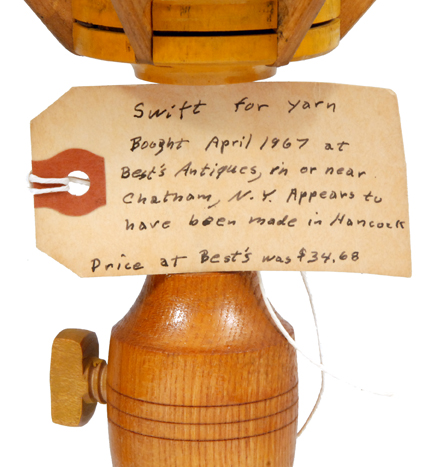 Swift for yarn
Bought April 1967 at
Best's Antiques, in or near
Chatham, N.Y. Appears to
have been made in Hancock
Price at Best's was $34.68